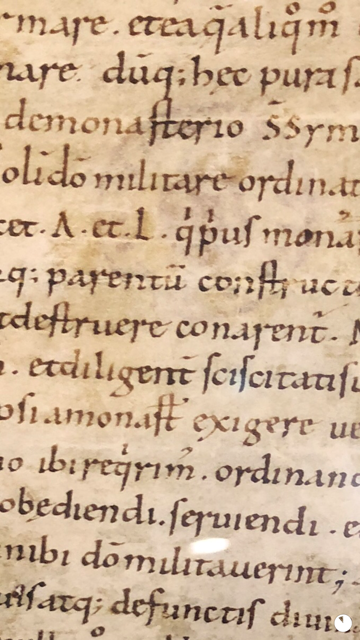 rmare . et ea q̄ aliq̊m̄
nare . dūq; hec pura s
demonasterio S̄S̄ ym
oli dō militare ordinat
cet . A . et . L . q̇ p̄us mona
q; parentū construct
t destruere conarent̄ .
. et diligent̄ sciscitatis
psi amonast̄ exigere ue
io ibi reqrim̄ . ordinand
obediendi . seruiendi . e
nibi dō militauerint ;
atq; defunctis diui